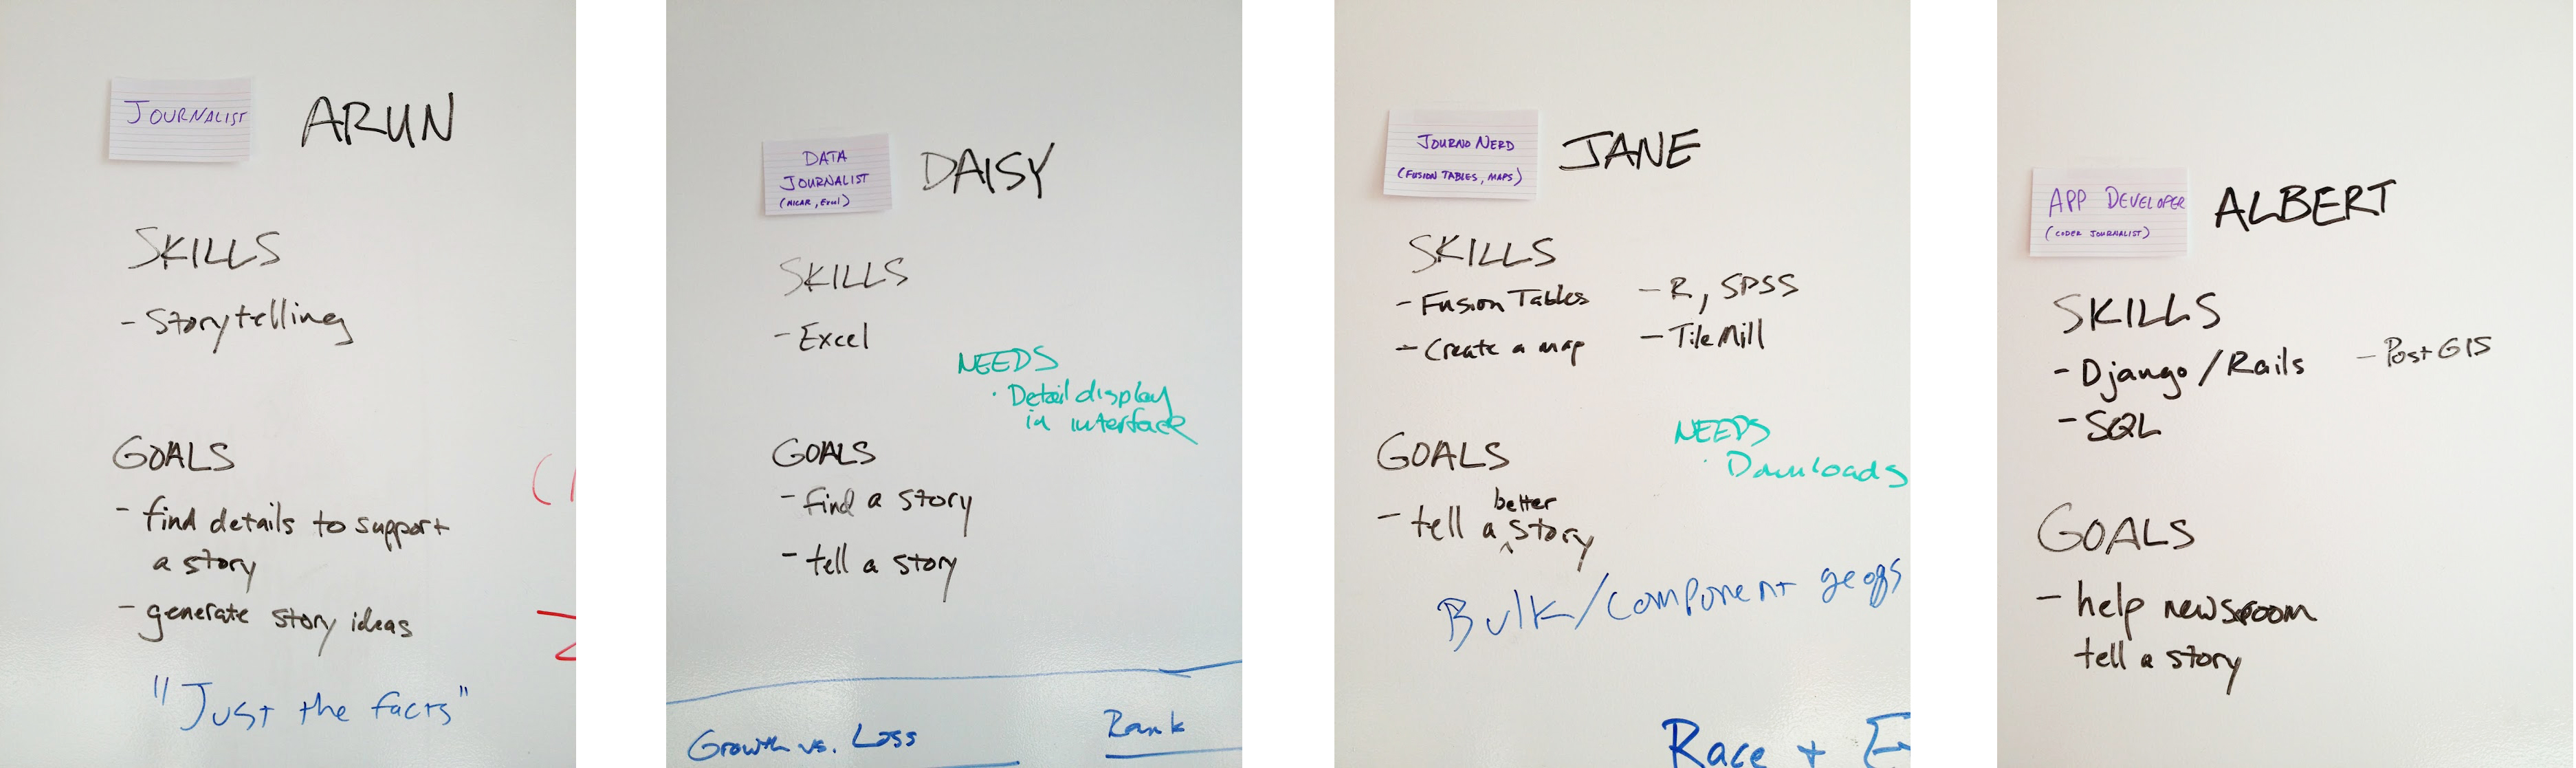 JOURNALIST
ARUN
SKILLS
- Storytelling
GOALS
- find details to support
a story
- generate story ideas
"Just the facts"
DATA
JOURNALIST
(NICAR, Excel)
DAISY
SKILLS
- Excel
NEEDS
· Detail display
in interface
GOALS
- find a story
- tell a story
Growth vs. Loss
Rank
JOURNO NERD
(FUSION TABLES, MAPS)
JANE
SKILLS
- Fusion Tables
- Create a map
- R, SPSS
- TileMill
NEEDS
· Downloads
GOALS
- tell a better story
Bulk/component geogs
Race +
APP DEVELOPER
(CODER JOURNALIST)
ALBERT
SKILLS
- Django/Rails
- SQL
- PostGIS
GOALS
- help newsroom
tell a story